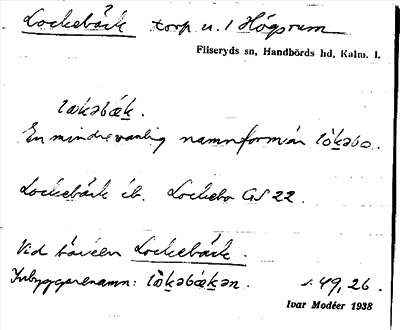 Lockebäck torp u. 1 Högsrum
Fliseryds sn, Handbörds hd, Kalm. l.
lɔkəbæk.
En mindre vanlig namnform är lɔ̀kəbo.
Lockebäck ib. Lockebo GS 22.
Vid bäcken Lockebäck.
Inbyggarenamn: lɔ̀kəbækən. s. 49, 26.
Ivar Modéer 1938